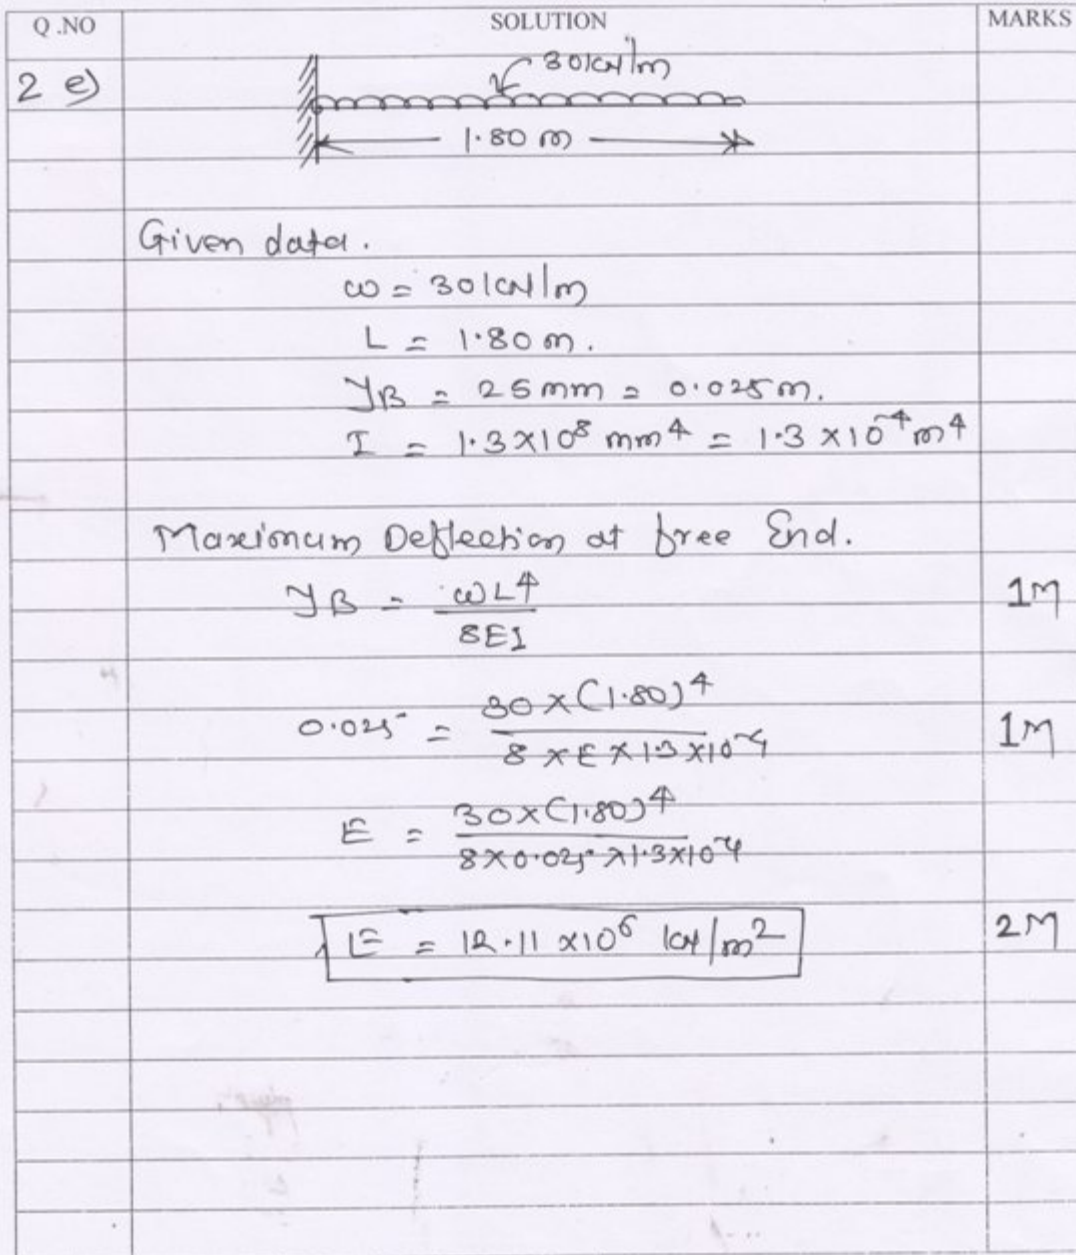 Q.NO SOLUTION MARKS
2 e) 30kN/m
1.80 m
Given data.
ω = 30kN/m
L = 1.80 m.
yB = 25mm = 0.025m.
I = 1.3×10⁸ mm⁴ = 1.3×10⁻⁴ m⁴
Maximum Deflection at free End.
yB = ωL⁴ / 8EI 1M
0.025 = 30×(1.80)⁴ / 8×E×1.3×10⁻⁴ 1M
E = 30×(1.80)⁴ / 8×0.025×1.3×10⁻⁴
E = 12.11×10⁶ kN/m² 2M